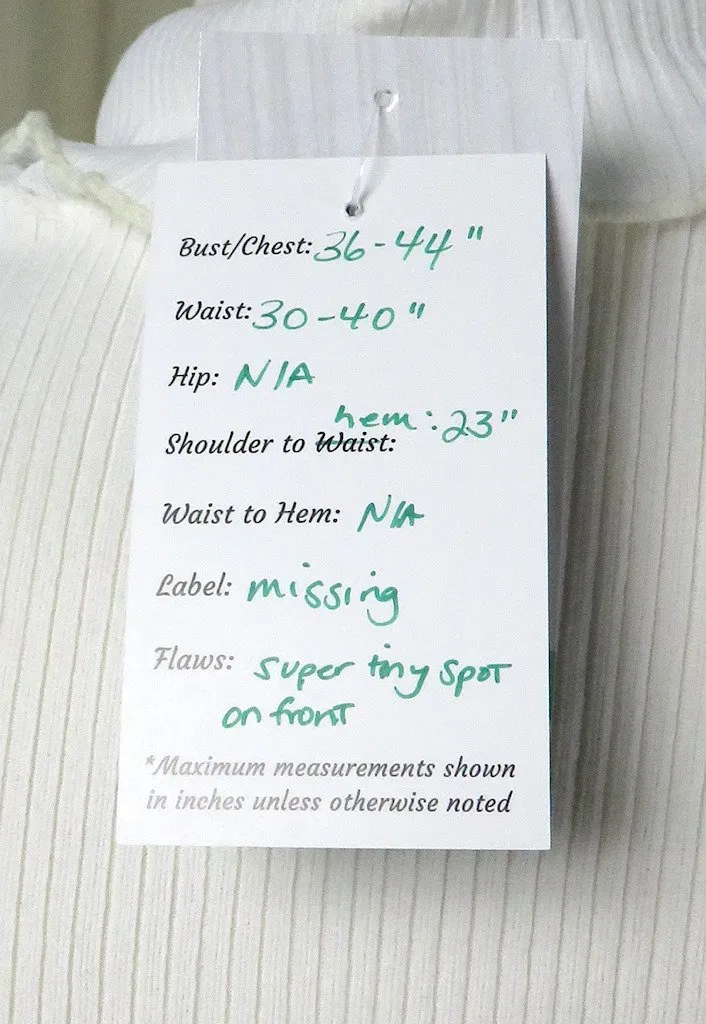 Bust/Chest: 36-44"
Waist: 30-40"
Hip: N/A
hem: 23"
Shoulder to Waist:
Waist to Hem: N/A
Label: missing
Flaws: super tiny spot
on front
*Maximum measurements shown
in inches unless otherwise noted